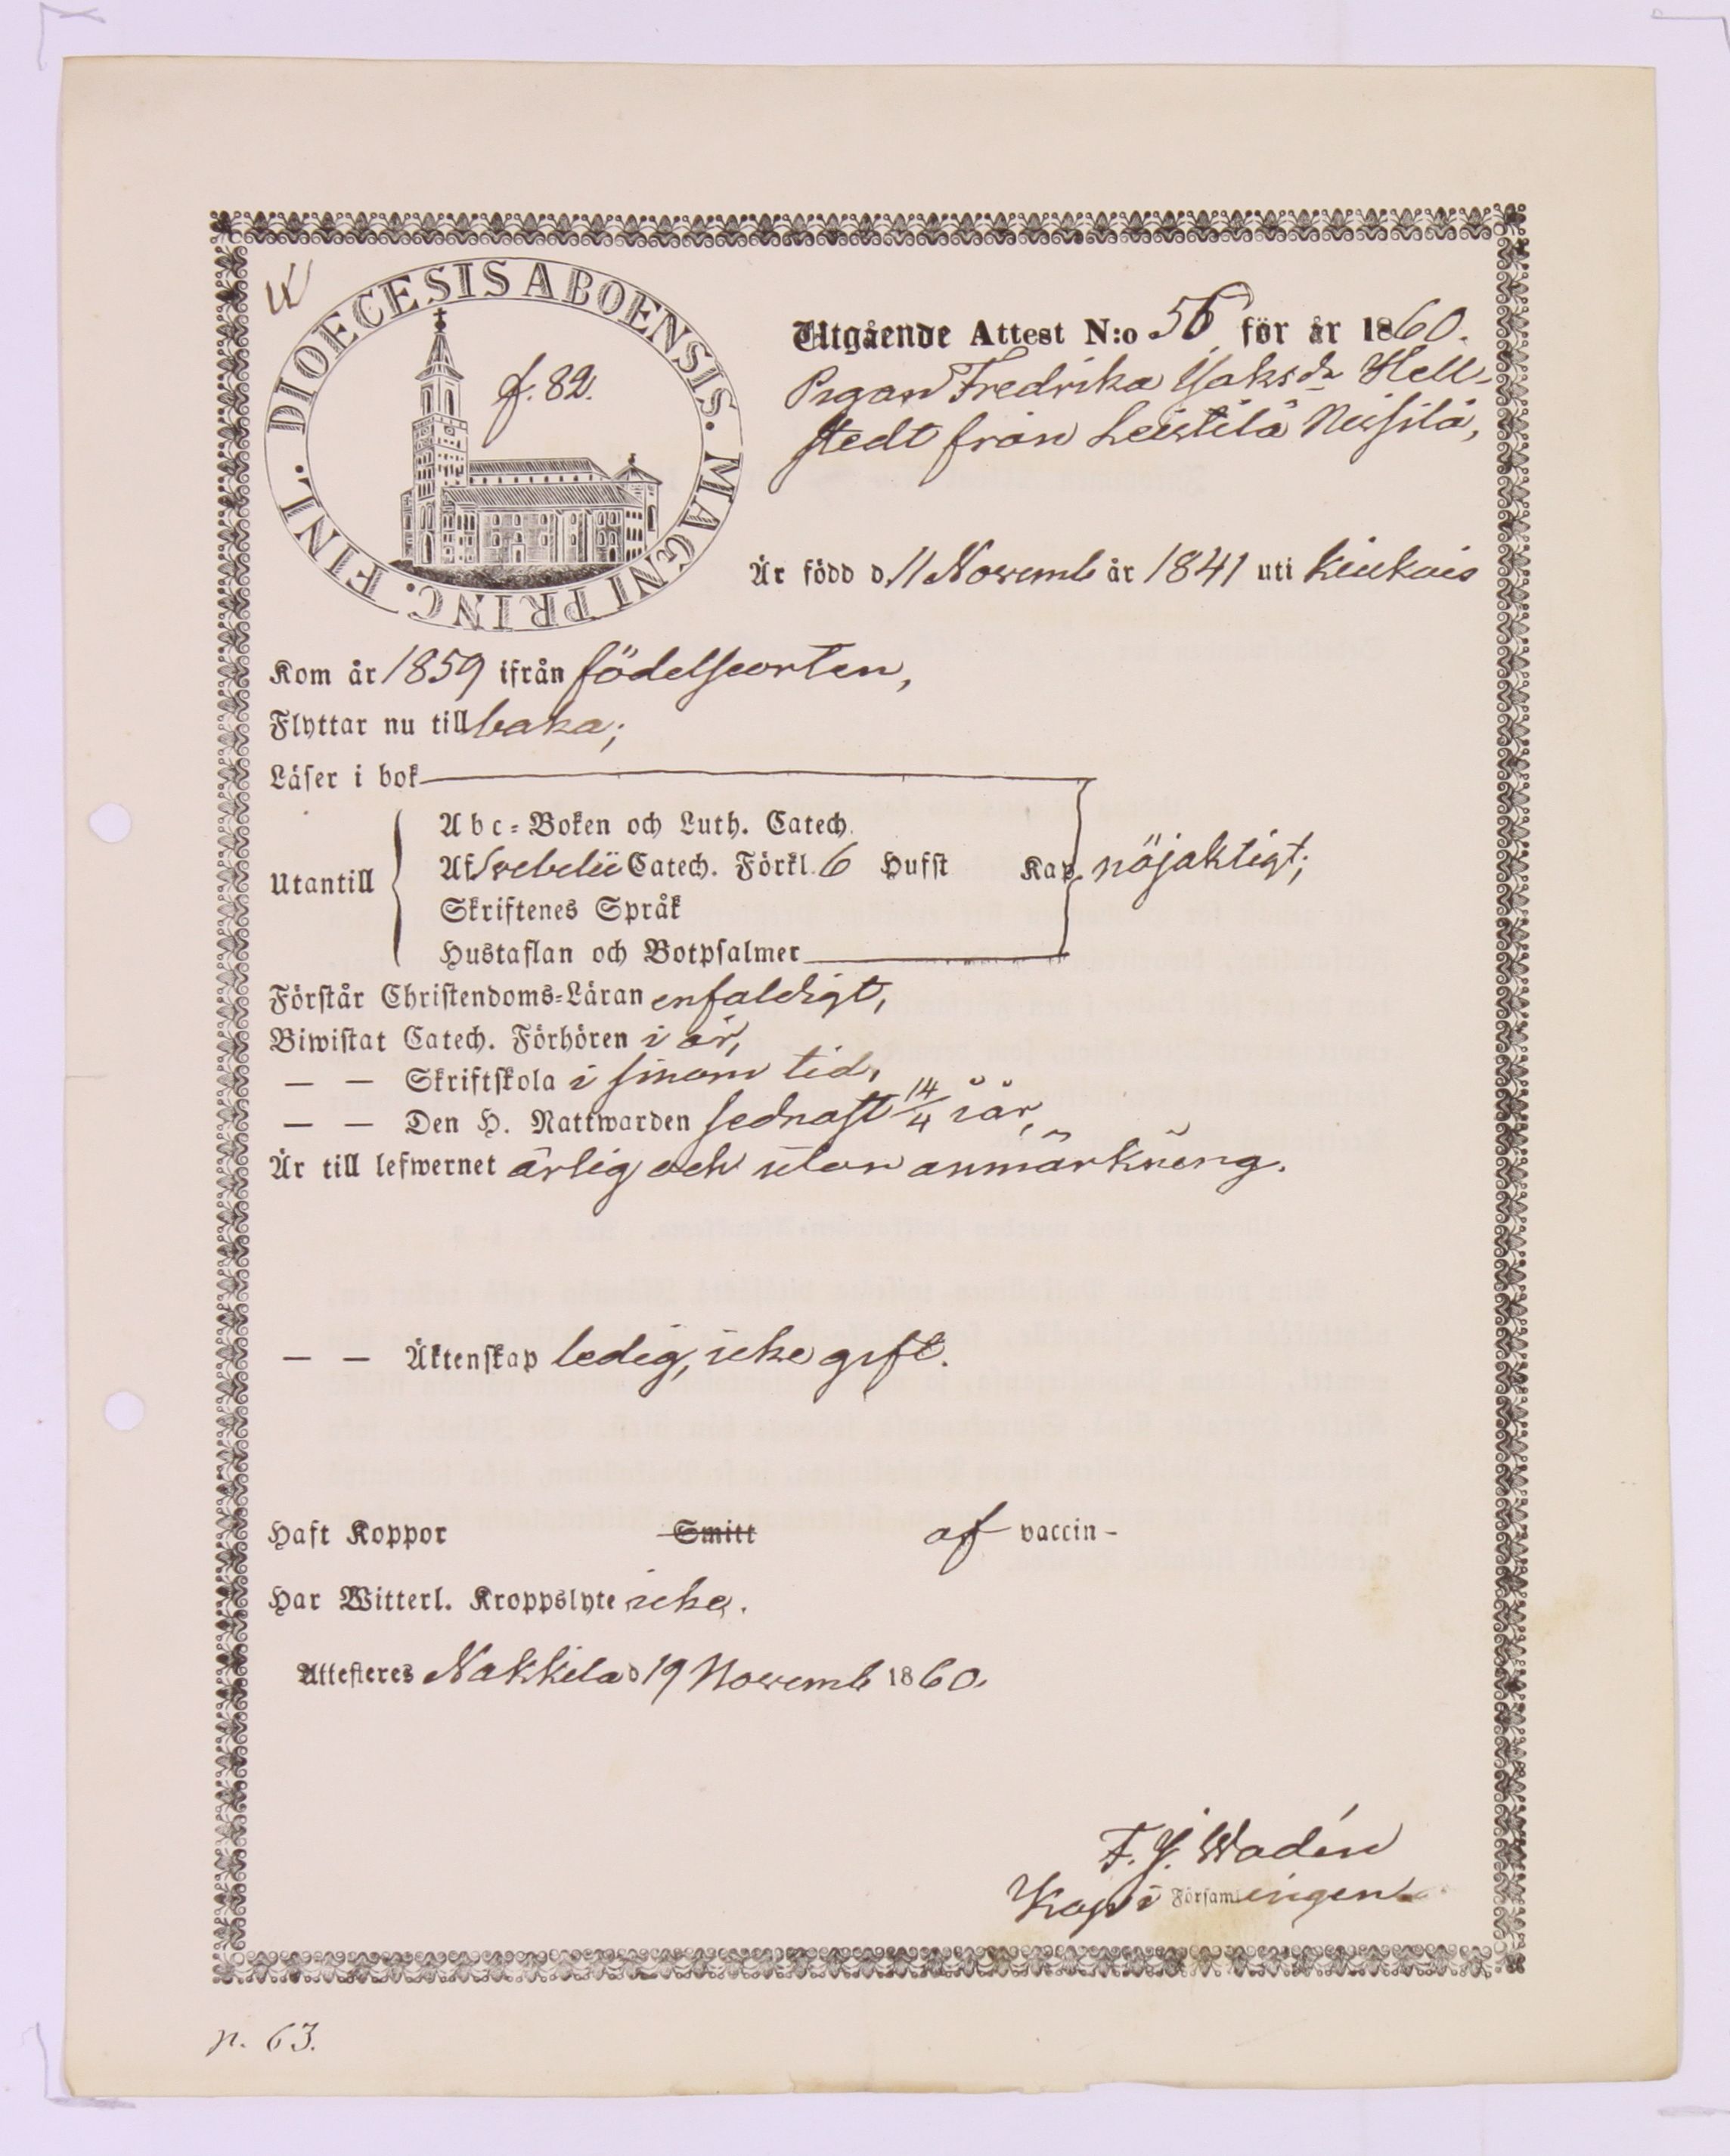 DIOECESIS ABOENSIS. MAGNI PRINC. FINL.
f. 82.
Utgående Attest N:o 56 för år 1860.
Pigan Fredrika Isaksdr Hell-
stedt från Leistilä Neisilä,
Är född d. 11 Novemb år 1841 uti Kiukais
Kom år 1859 ifrån födelseorten,
Flyttar nu till baka;
Läser i bok
Abc-Boken och Luth. Catech.
Utantill
Af Svebelii Catech. Förkl. 6 Hufst Kap. nöjaktigt;
Skriftenes Språk
Hustaflan och Botpsalmer
Förstår Christendoms-Läran enfaldigt,
Biwistat Catech. Förhören i år,
— — Skriftskola i sinom tid,
— — Den H. Nattwarden sednast 14/4 i år,
Är till lefwernet ärlig och utan anmärkning.
— — Äktenskap ledig, icke gift.
Haft Koppor Smitt af vaccin-
Har Witterl. Kroppslyte icke.
Attesteres Nakkila d 19 Novemb 1860.
F. J. Wadén
Kap. i Församlingen
p. 63.